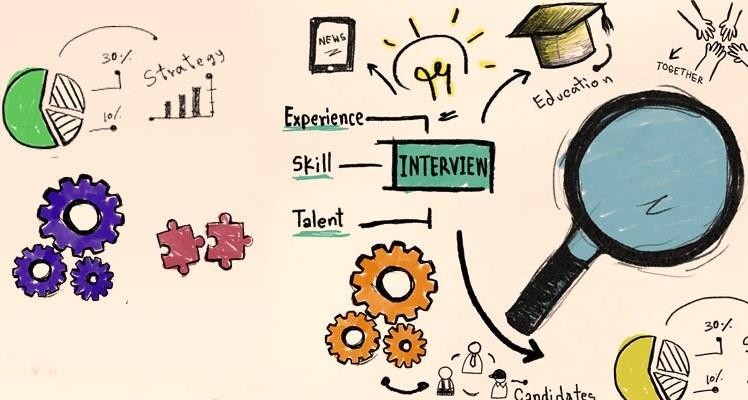 30%
Strategy
10%
NEWS
Education
TOGETHER
Experience
Skill
INTERVIEW
Talent
30%
10%
Candidates